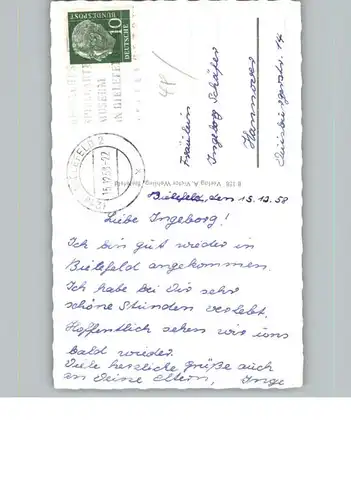 DEUTSCHE
BUNDESPOST
10
IN BIELEFELD
15.12.58-12
48/
Fräulein
Ingeborg Schäfer
Hannover
Duisburgerstr. 14
B 128 Verlag A. Victor Wehling, Bielefeld
Bielefeld, den 15.12.58
Liebe Ingeborg!
Ich bin gut wieder in
Bielefeld angekommen.
Ich habe bei Dir sehr
schöne Stunden verlebt.
Hoffentlich sehen wir uns
bald wieder.
Viele herzliche grüße auch
an Deine Eltern, Inge